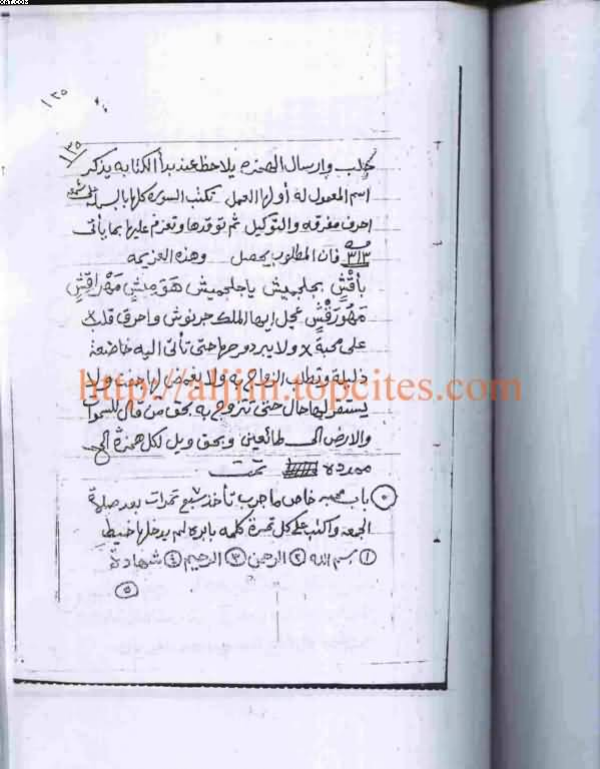 ١٣٥
١٣٥
جلب وإرسال الهمزه يلاحظ عند بدأ الكتابه يذكر
اسم المعمول له أولها العمل تكتب السوره كلها بالبسملة على شمعه
احرف مفرقه والتوكيل ثم توقدها وتعزم عليها بما يأتى
٣١٣ مره فان المطلوب يحصل وهذه العزيمه
بأقش بحلميش يا جلجميش هقميش مهراقش
مهورقش عجل إيها الملك حرنوش واحرق قلب x
على محبة x ولا يبرد وحها حتى تأتى اليه خاضعة
ذليلة وتطلب الزواج به ولا يغمض لها جفن ولا
يستقر لها حال حتى تتزوج به بحق من قال للسموات
والارض الى طائعين وبحق ويل لكل همزة الى
ممدده تمت
باب محبه خاص ما جرب تأخذ سبع تمرات بعد صلاة
الجمعه واكتب على كل تمرة كلمه بابره لم يدخلها خيط
١ بسم الله ٢ الرحمن ٣ الرحيم ٤ شهادة
٥
http://aljinn.topcites.com